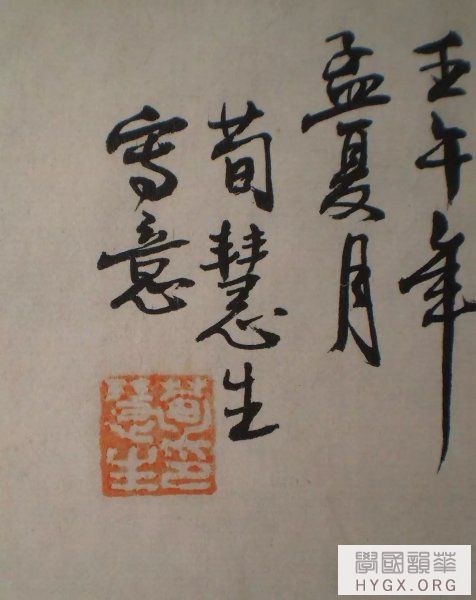 壬午年
孟夏月
荀慧生
寫意
荀印
慧生
學國韻華
HYGX.ORG